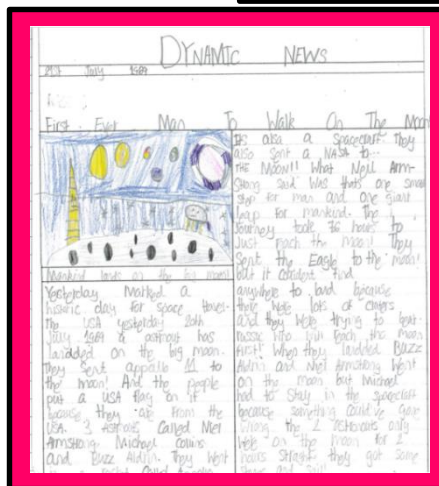 DYNAMIC NEWS
21st July 1969
First Ever Man To Walk On The Moon
Mankind lands on the big moon!
Yesterday Marked a
historic day for space
The USA yesterday 20th
July 1969 a astronut has
landded on the big moon.
They sent appollo 11 to
the moon! And the people
put a USA flag on it
because they are from the
USA. 3 Astronuts Called Neil
Armstrong, Michael Collins
and Buzz Aldrin. They went
Its also a spacecraft. They
also sent a NASA to
THE MOON!! What Neil Arm-
strong said was thats one small
step for man and one giant
leap for mankind. The
Journey took 76 hours to
Just reach the moon! They
sent the Eagle to the moon!
but it couldent find
anywhere to land because
there were lots of craters
and they were trying to beat
who will reach the moon
first! When they landded BUZZ
Aldrin and Niel Armstrong Went
on the moon but Michael
had to stay in the spacecraft
because something could've gone
wrong. The 2 Astronuts only
were on the moon for 2
hours straight they got some